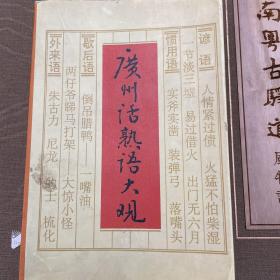 谚语
人情紧过债 火猛不怕柴湿
一节淡三墟 易过借火 出门无六月
惯用语
实斧实凿 装弹弓 落嘴头
廣州话熟语大观
歇后语
倒吊腊鸭 一嘴油
两仔爷睇马打架 大惊小怪
外来语
朱古力 尼龙 士 梳化
南粤古驿道